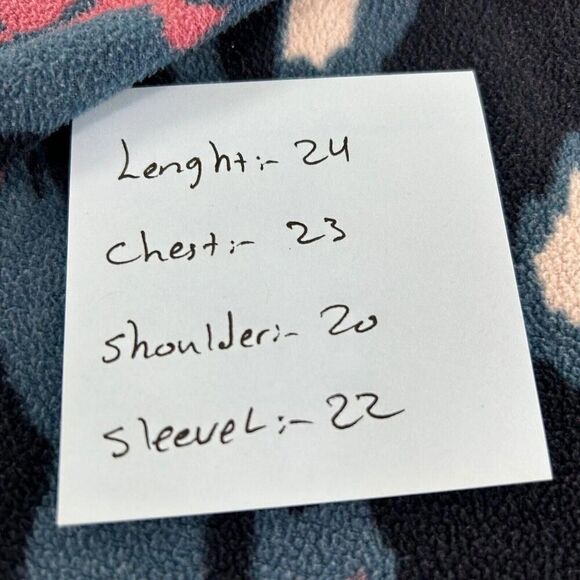 Lenght:- 24
Chest:- 23
Shoulder:- 20
Sleevel:- 22